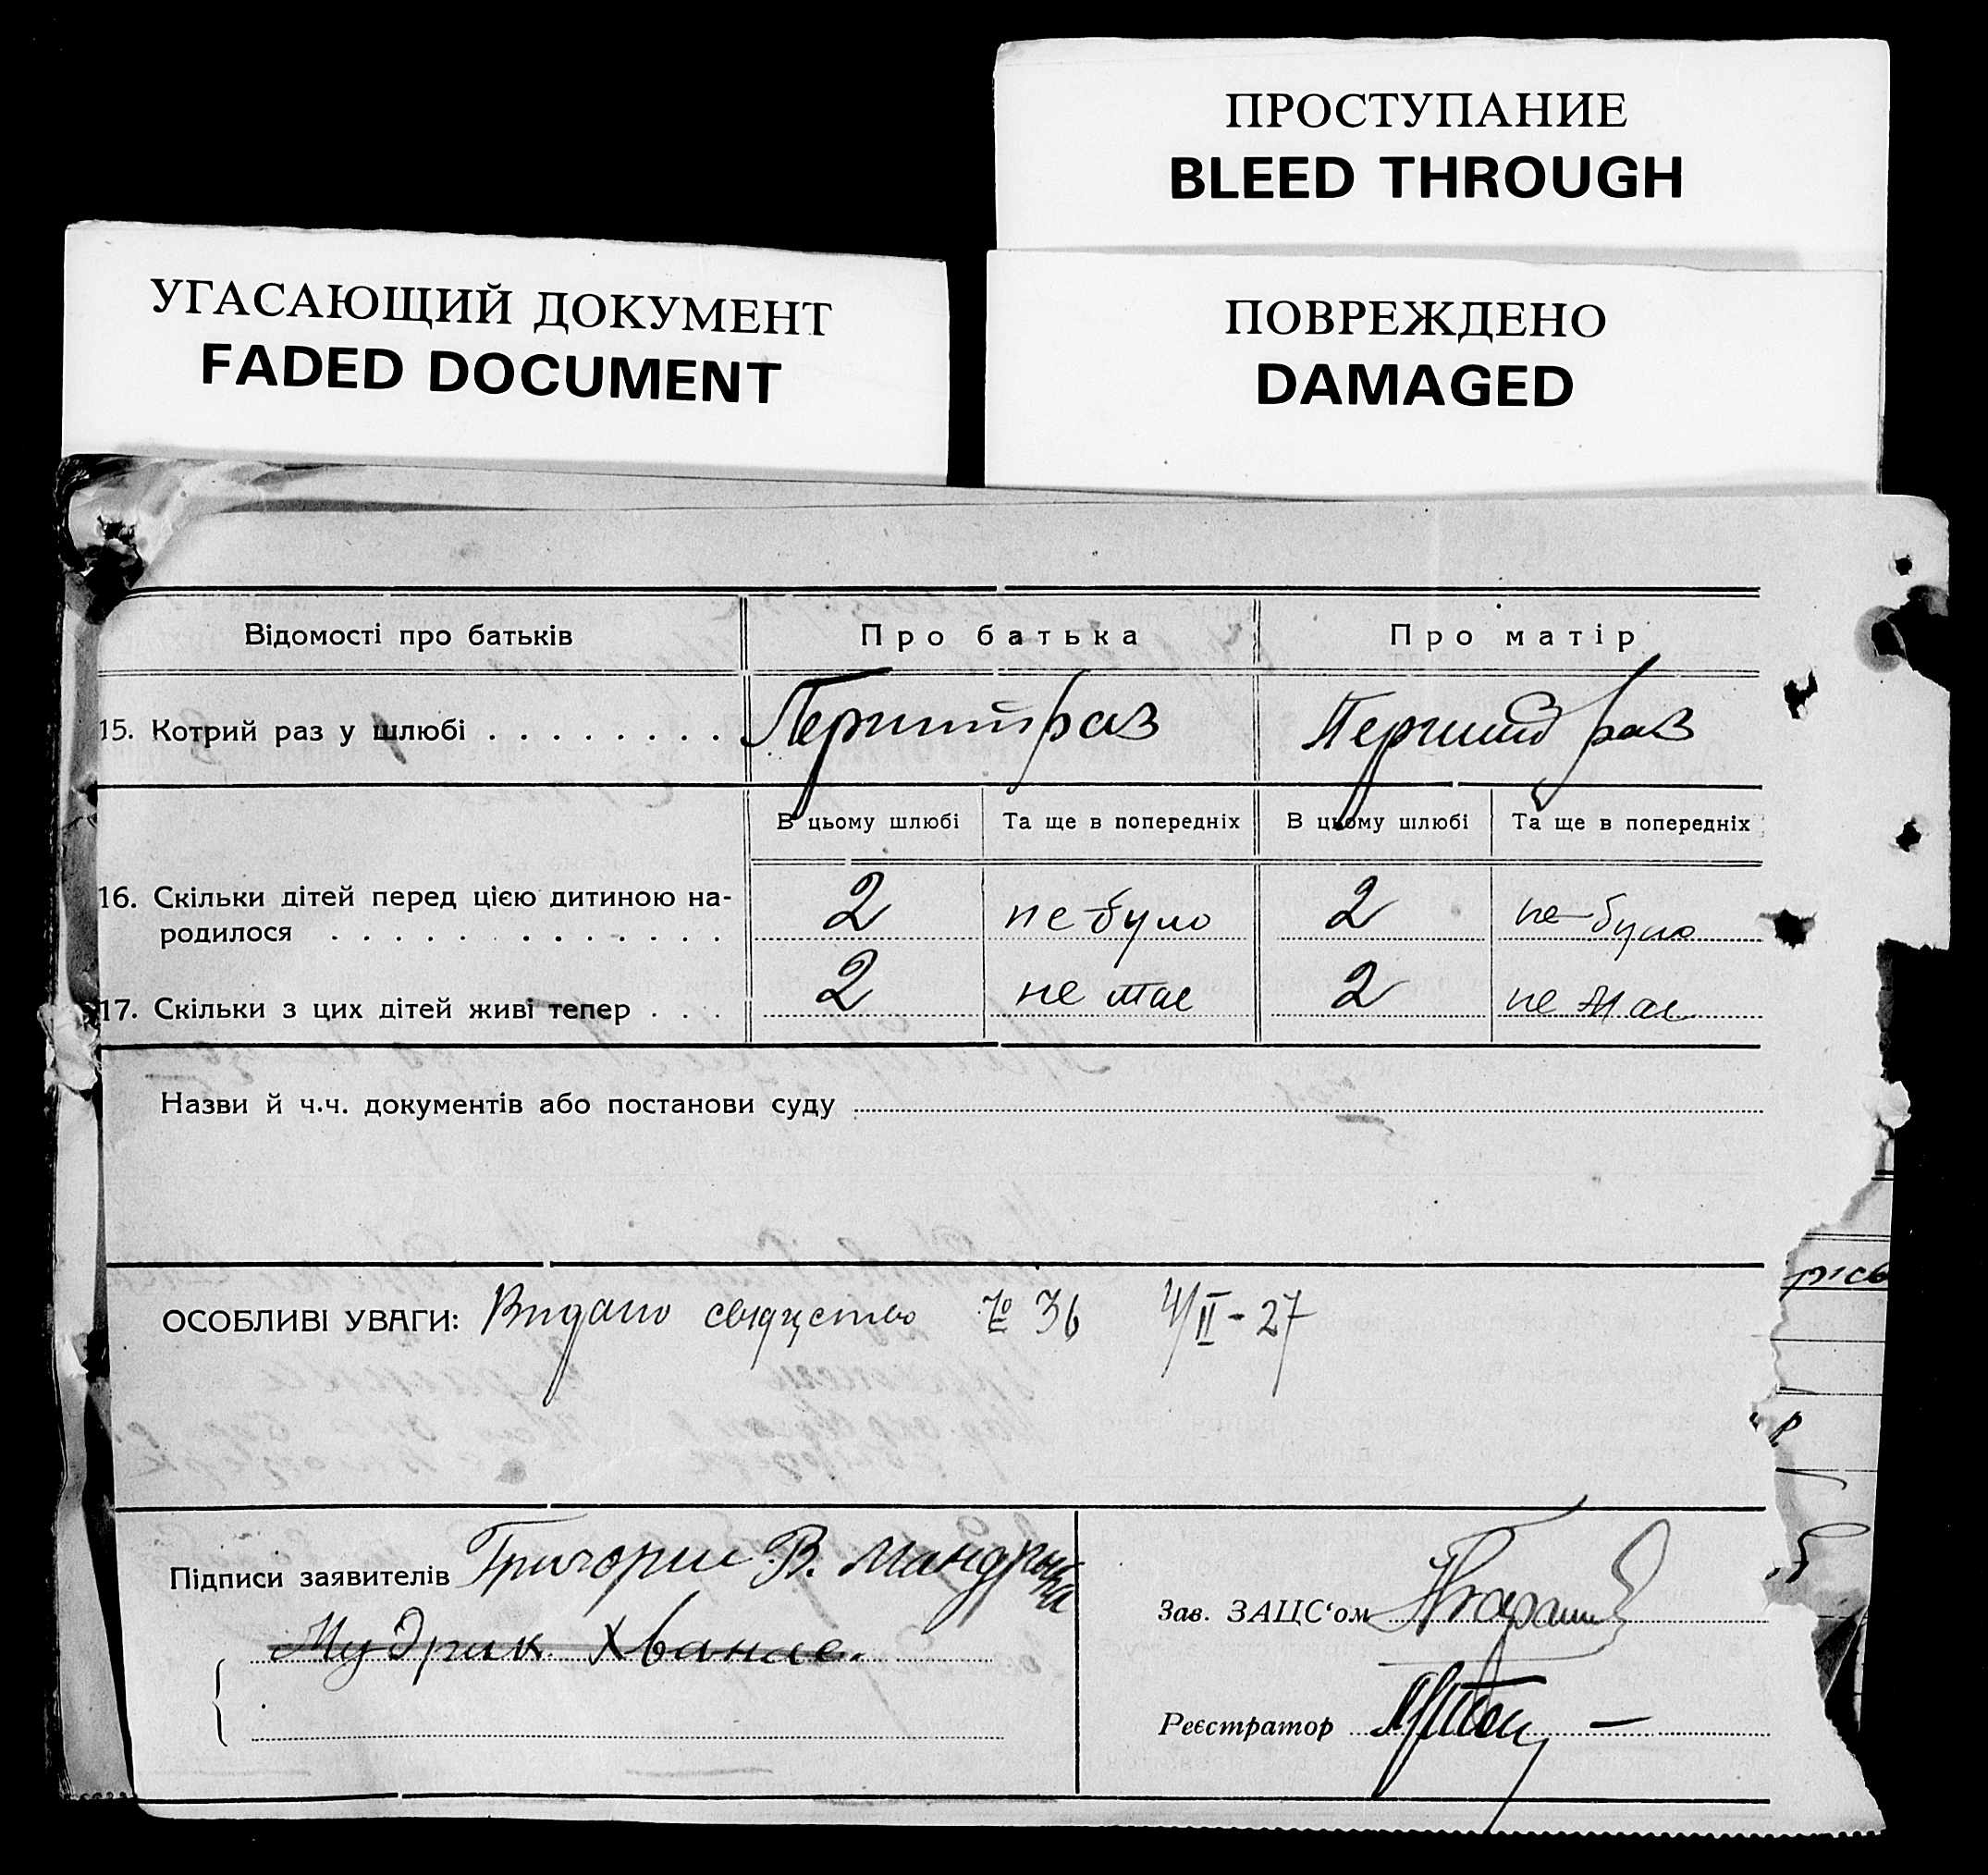 ПРОСТУПАНИЕ
BLEED THROUGH
УГАСАЮЩИЙ ДОКУМЕНТ
FADED DOCUMENT
ПОВРЕЖДЕНО
DAMAGED
Відомості про батьків Про батька Про матір
15. Котрий раз у шлюбі . . . . . . . . Перший раз Перший раз
В цьому шлюбі Та ще в попередніх В цьому шлюбі Та ще в попередніх
16. Скільки дітей перед цією дитиною на-
родилося . . . . . . . . . . . . . 2 не було 2 не було
17. Скільки з цих дітей живі тепер . . . 2 не має 2 не має
Назви й ч.ч. документів або постанови суду
ОСОБЛИВІ УВАГИ: Видано свідуство № 36 4/II-27
Підписи заявителів Григории В. Мандрыка
Мудрик
Зав. ЗАЦС'ом
Реєстратор